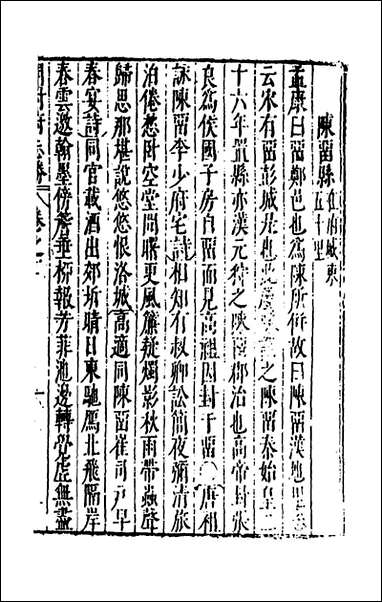 陳留縣在府城東五十里
孟康曰留鄭邑也爲陳所併故曰陳留漢地里志
云宋有留彭城是也之陳留秦始皇二
十六年置縣亦漢元狩之陳留郡治也高帝封張
良爲侯國子房自留而見高祖因封于留唐祖
詠陳留李少府宅詩相知有叔卿訟簡夜彌清旅
泊倦愁卧空堂聞曙更風簾摇燭影秋雨帶蟲聲
歸思那堪說悠悠恨洛城高適同陳留崔司戶早
春宴詩同官載酒出郊圻晴日東馳鴈北飛隔岸
春雲邀翰墨傍簷垂柳報芳菲池邊轉覺虛無盡